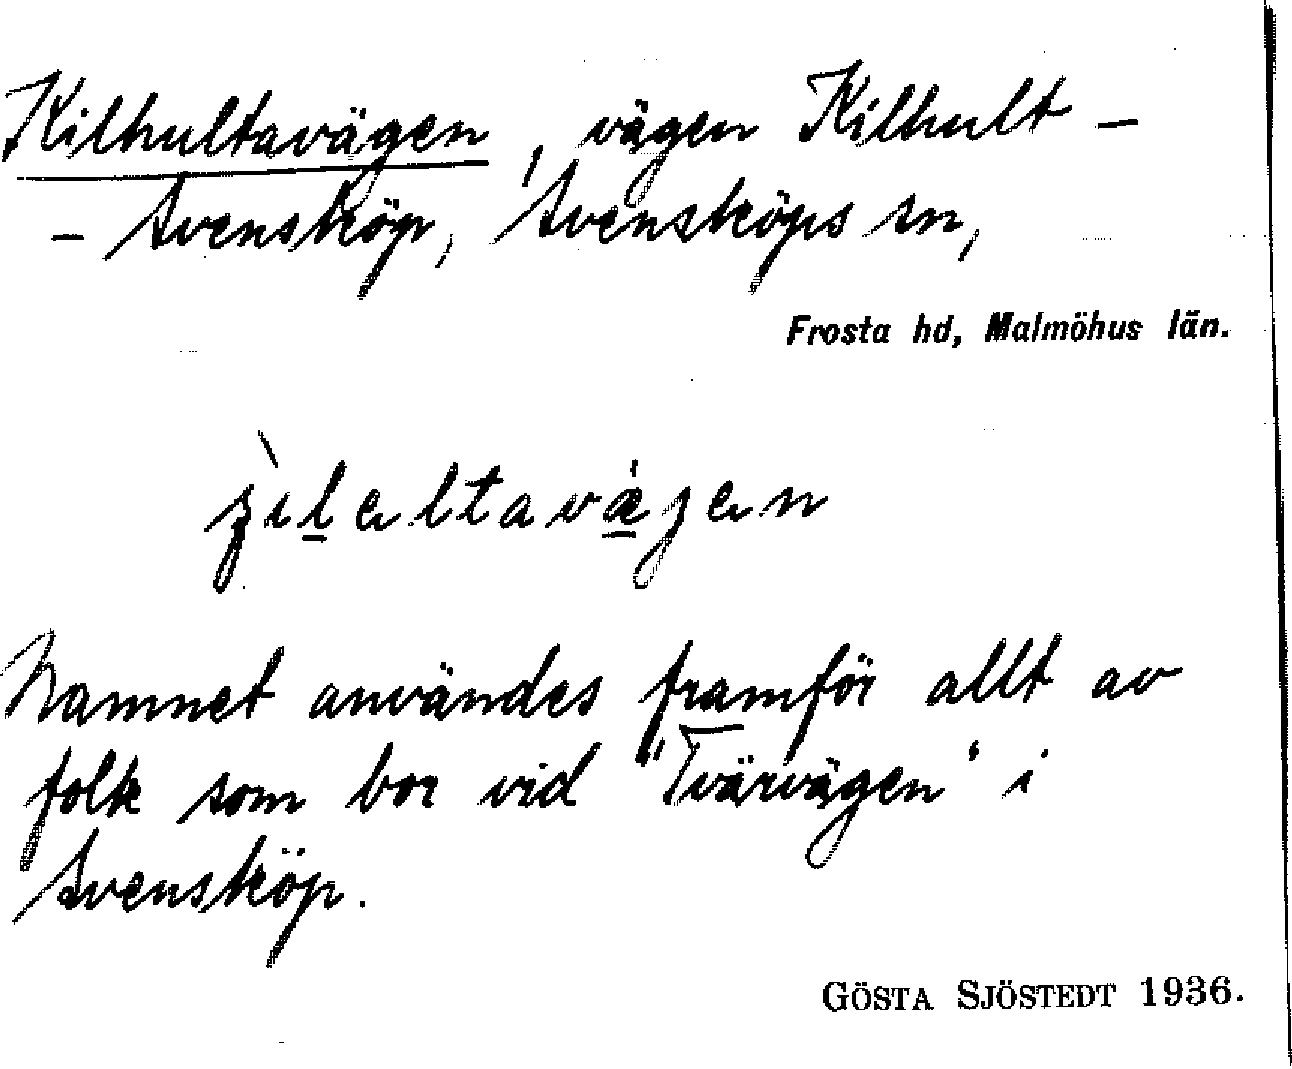 Kilhultavägen, vägen Kilhult –
– Svensköp, Svensköps sn,
Frosta hd, Malmöhus län.
Namnet användes framför allt av
folk som bor vid "Tvärvägen" i
Svensköp.
GÖSTA SJÖSTEDT 1936.